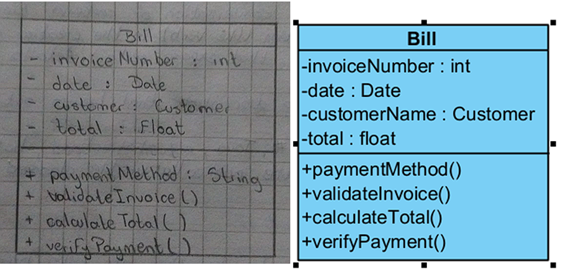 Bill
- invoiceNumber : int
- date : Date
- customer : Customer
- total : Float
+ paymentMethod : String
+ validateInvoice()
+ calculateTotal()
+ verifyPayment()
Bill
-invoiceNumber : int
-date : Date
-customerName : Customer
-total : float
+paymentMethod()
+validateInvoice()
+calculateTotal()
+verifyPayment()